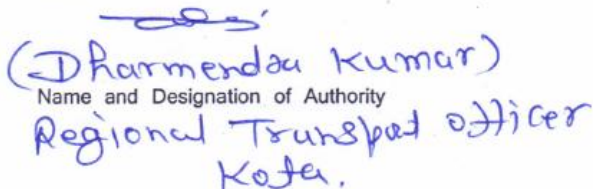 (Dharmendra Kumar)
Name and Designation of Authority
Regional Transport officer
Kota.